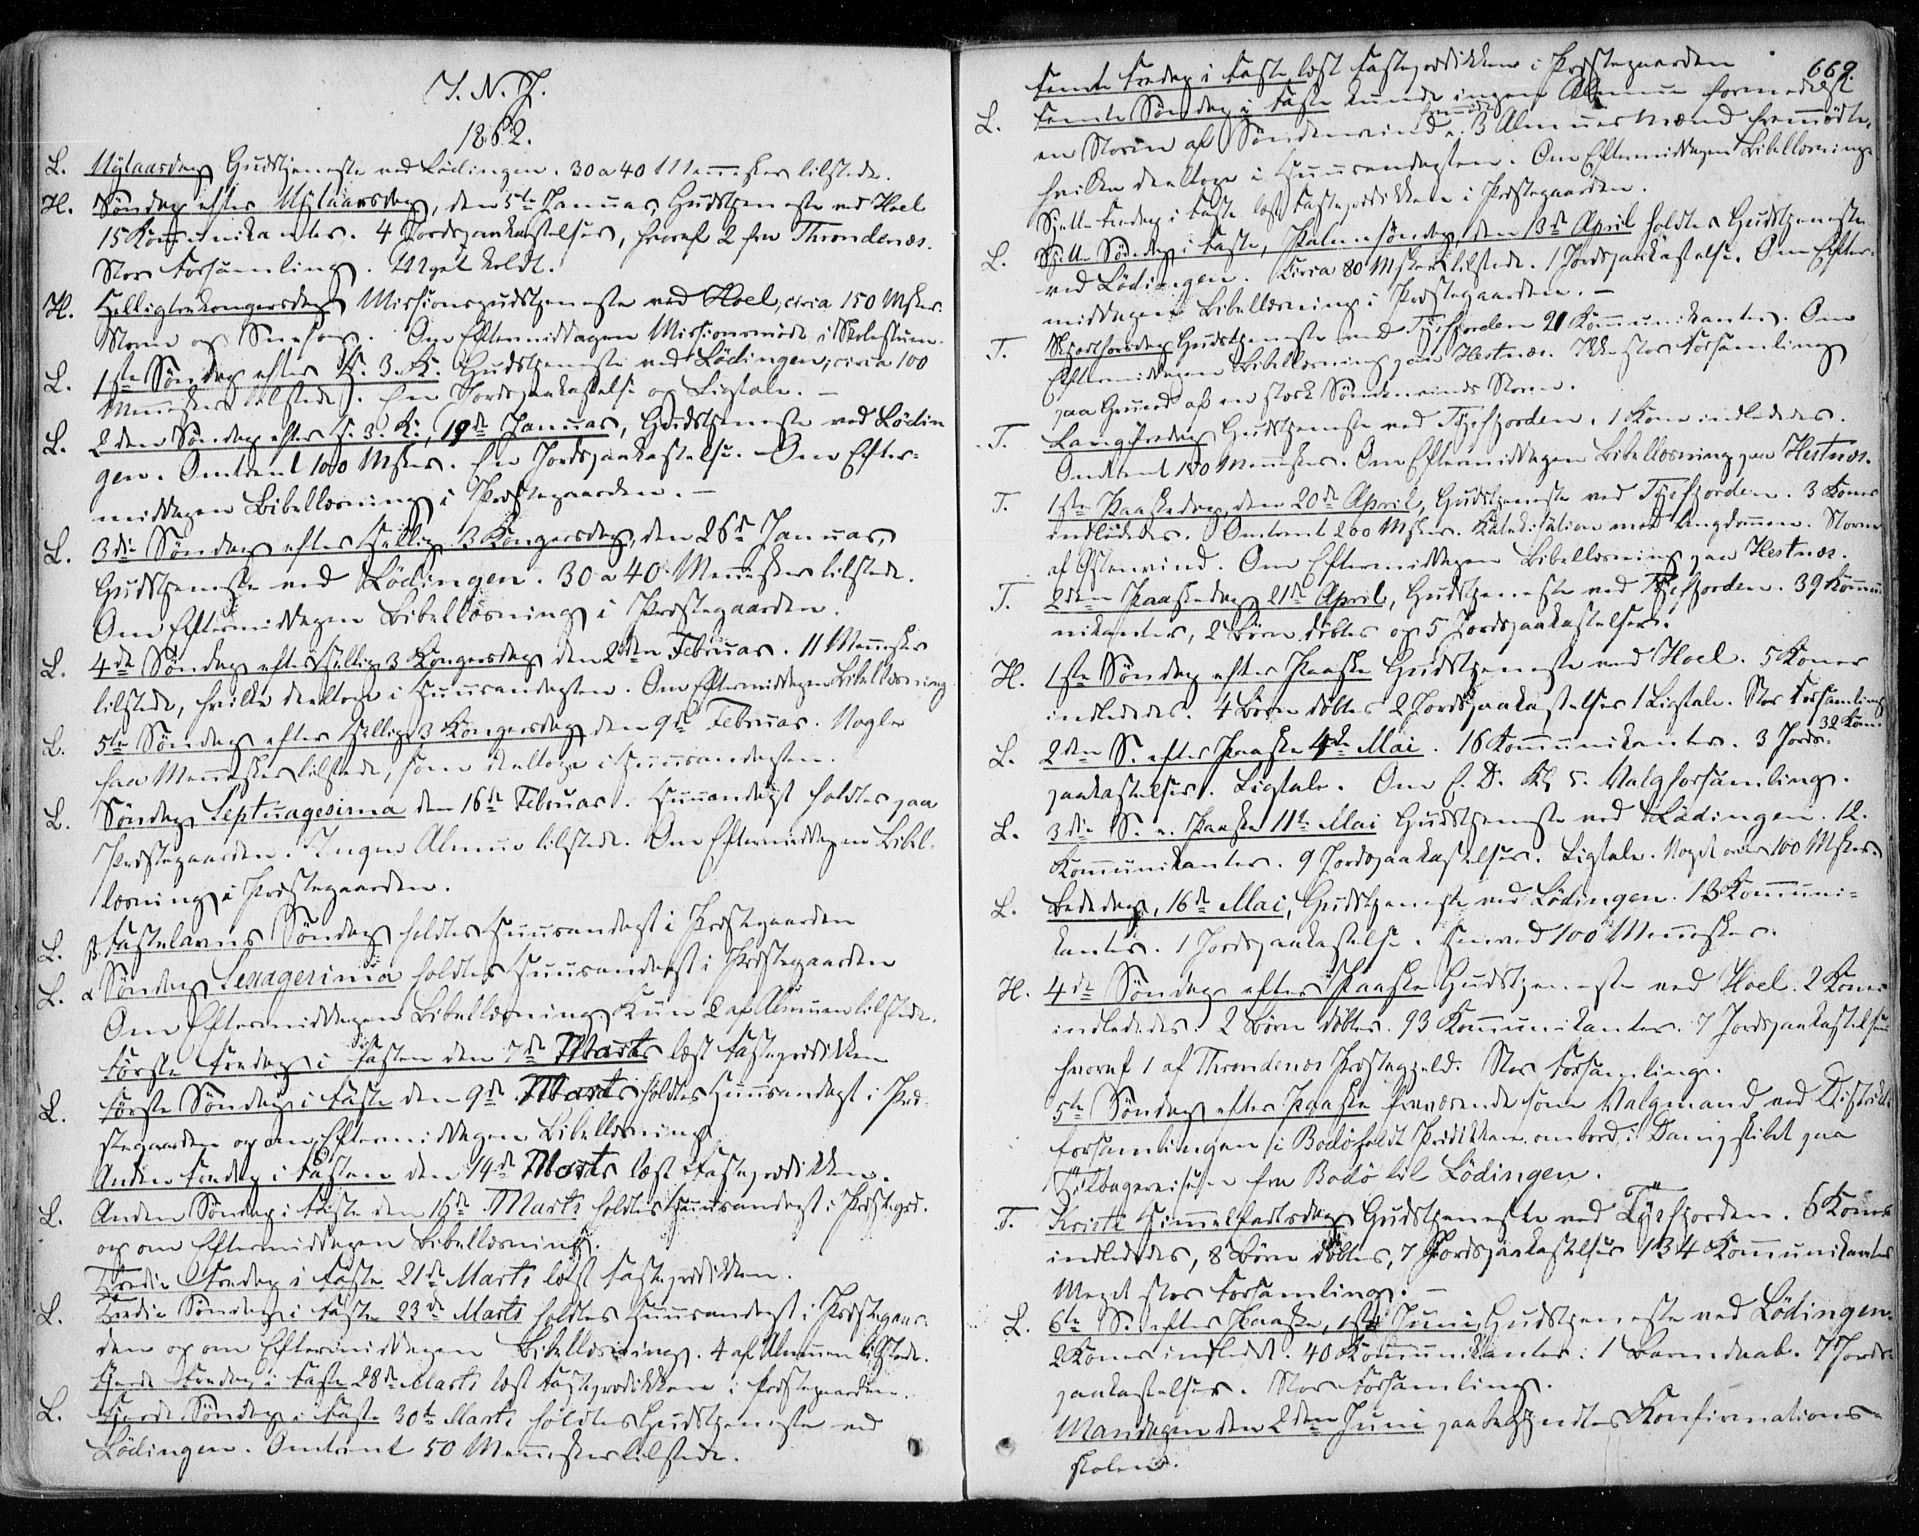 I. N. J.
1862.
L. Nytaarsdag Gudstjeneste ved Lödingen. 30 a 40 Mennesker tilstede.
H. Söndag efter Nytaarsdag, den 5te Januar, Gudstjeneste ved Hoel
15 Kommunikanter. 4 Jordspaakastelser, hvoraf 2 fra Throndenæs.
Stor Forsamling. Meget koldt.
H. Helligtrekongersdag Missionsgudstjeneste ved Hoel, circa 150 Msker.
Storm og Snefog. Om Eftermiddagen Missionsmöde i Skolestuen.
L. 1ste Söndag efter H. 3. K. Gudstjeneste ved Lödingen, circa 100
Mennesker tilstede. En Jordspaakastelse og Ligtale. –
L. 2den Söndag efter H. 3. K., 19de Januar, Gudstjeneste ved Lödin
gen. Omtrent 100 Msker. En Jordspaakastelse. Om Efter-
middagen Bibellæsning i Præstegaarden. –
L. 3die Söndag efter Hellig 3 Kongersdag, den 26de Januar,
Gudstjeneste ved Lödingen. 30 a 40 Mennesker tilstede.
Om Eftermiddagen Bibellæsning i Præstegaarden.
L. 4de Söndag efter Hellig 3 Kongersdag den 2den Februar. 11 Mennesker
tilstede, hvilke deeltoge i Huusandagten. Om Eftermiddagen Bibellæsning
L. 5te Söndag efter Hellig 3 Kongersdag den 9de Februar. Nogle
faa Mennesker tilstede, som deeltoge i Huusandagten.
L. Söndag Septuagesima den 16de Februar. Huusandagt holdtes paa
Præstegaarden. Ingen Almue tilstede. Om Eftermiddagen Bibel-
læsning i Præstegaarden.
L. β. Fastelavns Söndag holdtes Huusandagt i Præstegaarden
L. α Söndag Sexagesima holdtes Huusandagt i Præstegaarden
Om Eftermiddagen Bibellæsning Kun 2 af Almuen tilstede.
Förste Fredag i Fasten den 7de Marts læst Fasteprædikken
L. Förste Söndag i Faste den 9de Marts holdtes Huusandagt i Præ-
stegaarden og om Eftermiddagen Bibellæsning
Anden Fredag i Fasten den 14de Marts læst Fasteprædikken.
L. Anden Söndag i Faste den 16de Marts holdtes Huusandagt i Præstegrd.
og om Eftermiddagen Bibellæsning.
Tredie Fredag i Faste 21de Marts læst Fasteprædikken.
L. Tredie Söndag i Faste 23de Marts holdtes Huusandagt i Præstegaar-
den og om Eftermiddagen Bibellæsning. 4 af Almuen tilstede.
Fjerde Fredag i Faste 28de Marts læst Fasteprædikken i Præstegaarden.
L. Fjerde Söndag i Faste 30te Marts holdtes Gudstjeneste ved
Lödingen. Omtrent 50 Mennesker tilstede.
669.
Femte Fredag i Faste læst Fasteprædikken i Præstegaarden
L. Femte Söndag i Faste kunde ingen Almue formedelst
en Storm af Söndenvind. 3 Almuesmænd fremmödte,
hvilke deeltoge i Huusandagten. Om Eftermiddagen Bibellæsning.
Sjette Fredag i Faste læst Fasteprædikken i Præstegaarden.
L. Sjette Söndag i Faste, Palmesöndag, den 13de April holdtes Gudstjeneste
ved Lödingen. Circa 80 Msker tilstede. 1 Jordspaakastelse. Om Efter-
middagen Bibellæsning i Præstegaarden. –
T. Skjærthorsdag Gudstjeneste ved Tysfjorden 21 Kommunikanter. Om
Eftermiddagen Bibellæsning paa Hestnæs. Ikke stor Forsamling
paa Grund af en stærk Söndenvinds Storm.
T. Langfredag Gudstjeneste ved Tysfjorden. 1 Kone indlededes.
Omtrent 150 Mennesker. Om Eftermiddagen Bibellæsning paa Hestnæs.
T. 1ste Paaskedag den 20de April, Gudstjeneste ved Tysfjorden. 3 Koner
indlededes. Omtrent 200 Msker. Katekisation med Ungdommen. Storm
af Östenvind. Om Eftermiddagen Bibellæsning paa Hestnæs.
T. 2den Paaskedag 21de April, Gudstjeneste ved Tysfjorden. 39 Kommu
nikanter, 2 Börn döbtes og 5 Jordspaakastelser.
H. 1ste Söndag efter Paaske Gudstjeneste ved Hoel. 5 Koner
indlededes. 4 Börn döbtes 2 Jordspaakastelser 1 Ligtale. Stor Forsamling
32 Kom.
L. 2den S. efter Paaske 4de Mai. 16 Kommunikanter. 3 Jords-
paakastelser. Ligtale. Om E. D. Kl 5. Valgforsamling.
L. 3die S. e. Paaske 11te Mai Gudstjeneste ved Lödingen. 12.
Kommunikanter. 9 Jordspaakastelser. Ligtale. Noget over 100 Msker.
L. Bededag, 16de Mai, Gudstjeneste ved Lödingen. 13 Kommuni-
kanter. 1 Jordspaakastelse. Henved 100 Mennesker.
H. 4de Söndag efter Paaske Gudstjeneste ved Hoel. 2 Koner
indlededes. 2 Börn döbtes. 93 Kommunikanter. 7 Jordspaakastelser
hvoraf 1 af Throndenæs Præstegjeld. Stor Forsamling.
5te Söndag efter Paaske fraværende som Valgmand ved Distrikts
forsamlingen i Bodö holdt Prædikken ombord i Dampskibet paa
Tilbagereisen fra Bodö til Lödingen.
T. Kristi Himmelfartsdag Gudstjeneste ved Tysfjorden. 6 Koner
indlededes, 8 Börn döbtes, 7 Jordspaakastelser 134 Kommunikanter
Meget stor Forsamling. –
L. 6te S. efter Paaske, 1ste Juni, Gudstjeneste ved Lödingen.
2 Koner indledet. 40 Kommunikanter. 1 Barnedaab. 7 Jords-
paakastelser. Stor Forsamling.
Mandagen den 2den Juni paabegyndtes Konfirmations-
skolen.